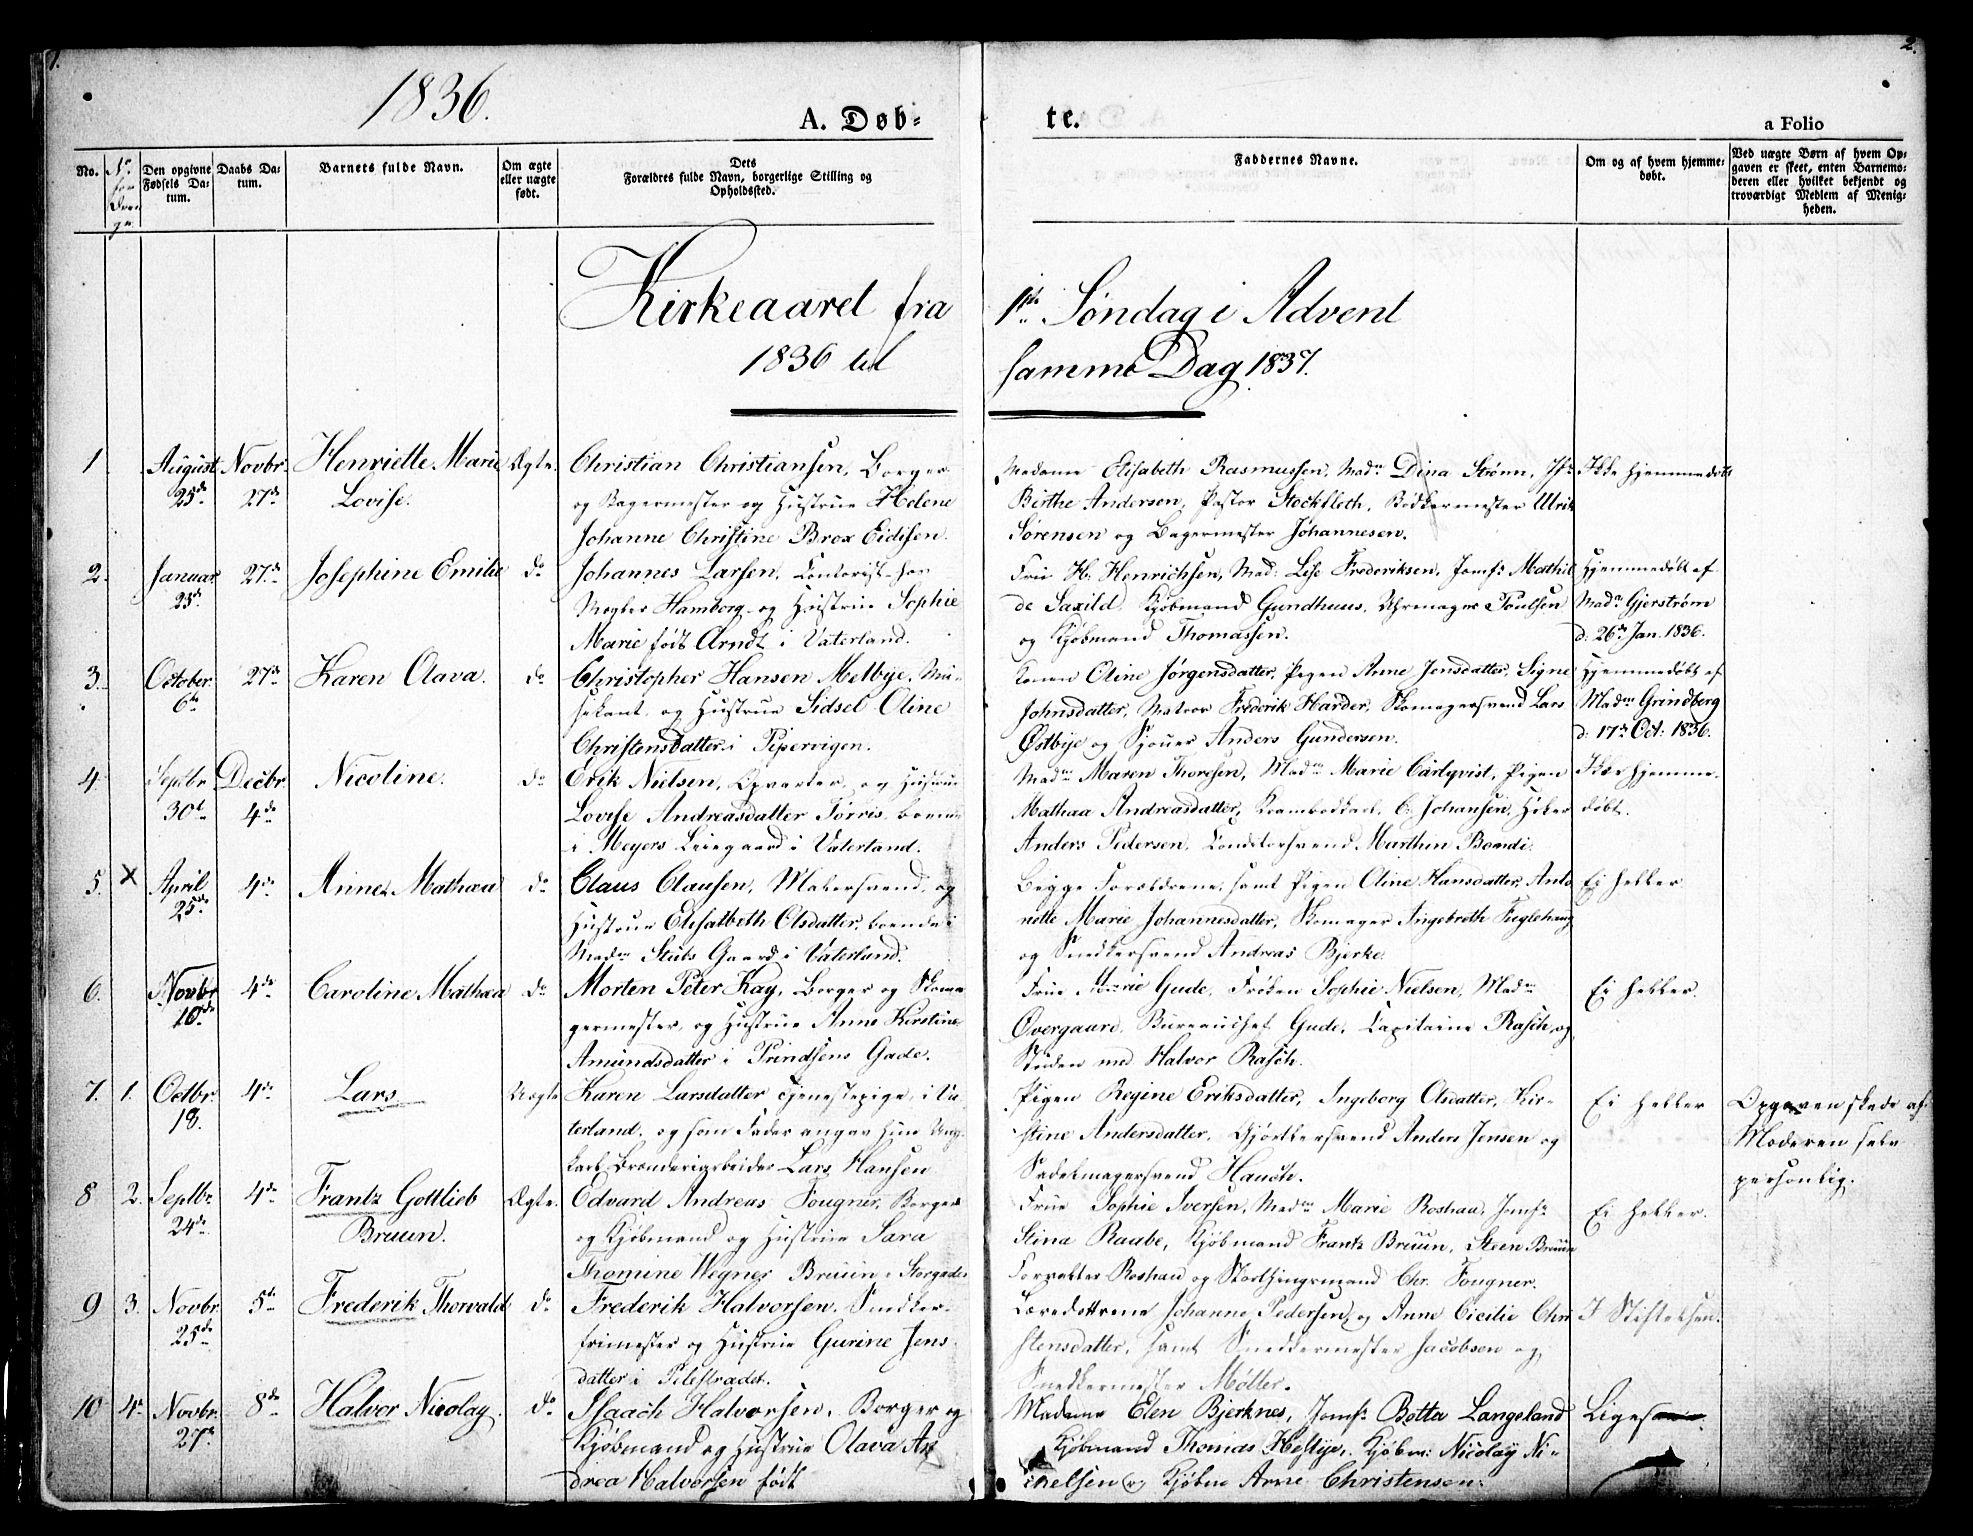 1.
2.
1836.
A. Døb-
te.
a Folio
No.
No for Drenge
Den opgivne Fødsels Datum.
Daabs Datum.
Barnets fulde Navn.
Om ægte eller uægte født.
Dets Forældres fulde Navn, borgerlige Stilling og Opholdssted.
Faddernes Navne.
Om og af hvem hjemmedøbt.
Ved uægte Børn af hvem Opgaven er skeet, enten Barnemoderen eller hvilket bekjendt og troværdigt Medlem af Menigheden.
Kirkeaaret fra 1ste Søndag i Advent
1836 til samme Dag 1837.
1 August 25de Novbr. 27de Henriette Marie Lovise. Ægte.
Christian Christiansen, Borger
og Bagermester og Hustrue Helene
Johanne Christine Brox Eidsen.
Madame Elisabeth Rasmussen, Madme Dina Strønn, Jfr
Birthe Andersen, Pastor Stockfleth, Bødkermester Ulrik
Sørensen og Bagermester Johannesen.
Ikke hjemmedøbt
2. Januar 25de 27de Josephine Emilie do
Johannes Larsen, Contorist hos
Mægler Hamborg og Hustrue Sophie
Marie født Arndt i Vaterland.
Frue H. Henrichsen, Mad: Lise Frederiksen, Jomfr Mathil
de Saxild, Kjøbmand Gundhuus, Uhrmager Poulsen
og Kjøbmand Thomassen.
Hjemmedøbt af
Madme Gjerstrøm
d: 26de Jan. 1836.
3. October 6te 27de Karen Olava. do
Christopher Hansen Melbye, Mu-
sekant, og Hustrue Sidsel Oline
Christensdatter i Pipervigen.
Konen Oline Jørgensdatter, Pigen Anne Jonsdatter, Signe
Johnsdatter, Matros Frederik Harder, Skomagersvend Lars
Østbye og Sjouer Anders Gundersen.
Hjemmedøbt af
Madme Grindberg
d: 17de Oct: 1836.
4. Septbr 30te Decbr. 4de Nicoline. do
Erik Nielsen, Opvarter, og Hustrue
Lovise Andreasdatter Torris, boende
i Meyers Leiegaard i Vaterland.
Madme Maren Thoresen, Madme Marie Carlqvist, Pigen
Mathea Andreasdatter, Krambodkarl C. Johansen, Høker
Anders Pedersen, Conditorsvend Marthin Bomdi.
Ikke hjemme-
døbt.
5. x April 25de 4de Anne Mathea do
Claus Clausen, Malersvend, og
Hustrue Elisabeth Olsdatter, boende i
Madme Stubs Gaard i Vaterland.
Begge Forældrene, samt Pigen Oline Hansdatter, Anto
nette Marie Johannesdatter, Skomager Ingebreth Fuglehaug
og Snedkersvend Andreas Bjerke.
Ei heller
6. Novbr 10de 4de Caroline Mathea do
Morten Peter Kay, Borger og Skoma
germester, og Hustrue Anne Kirstine
Amundsdatter i Prindsens Gade.
Frue Marie Gude, Frøken Sophie Nielsen, Madme
Overgaard, Bureauchef Gude, Capitaine Rasch, og
Studen med Halvor Rasch.
Ei heller.
7. 1. Octbr. 18. 4de Lars Uægte
Karen Larsdatter Tjenestepige, i Va
terland, og som Fader angav hun Ung
karl Brænderiarbeider Lars Hansen
Pigen Regine Eriksdatter, Ingeborg Olsdatter, Kir-
stine Andersdatter, Gjørtlersvend Anders Jensen og
Sadelmagersvend Hauch.
Ei heller
Opgaven skede af
Moderen selv
personlig.
8 2. Septbr 24de 4de Frantz Gottlieb Bruun. Ægte.
Edvard Andreas Fougner, Borger
og Kjøbmand og Hustrue Sara
Thomine Wegner Bruun i Storgaden
Frue Sophie Iversen, Madme Marie Roshau, Jomfr
Stina Raabe, Kjøbmand Frantz Bruun, Steen Bruun
Forvalter Roshau og Storthingsmand Chr. Fougner.
Ei heller.
9 3. Novbr. 25de 5te Frederik Thorvald do
Frederik Halvorsen, Snedker-
frimester og Hustrue Gurine Jens
datter i Pilestrædet.
Læredøttrene Johanne Pedersen, og Anne Cicilie Chri
stensdatter, samt Snedkermester Jacobsen og
Snedkermester Møller.
I Stiftelsen.
10 4. Novbr. 27de 8de Halvor Nicolay. do
Isaach Halvorsen, Borger og
Kjøbmand og Hustrue Olava An
drea Halvorsen født
Madame Elen Bjerknes, Jomfr Botta Langeland
Kjøbmand Thomas Heftye, Kjøbm: Nicolay Ni-
chelsen og Kjøbm Arne Christensen.
Ligesaa